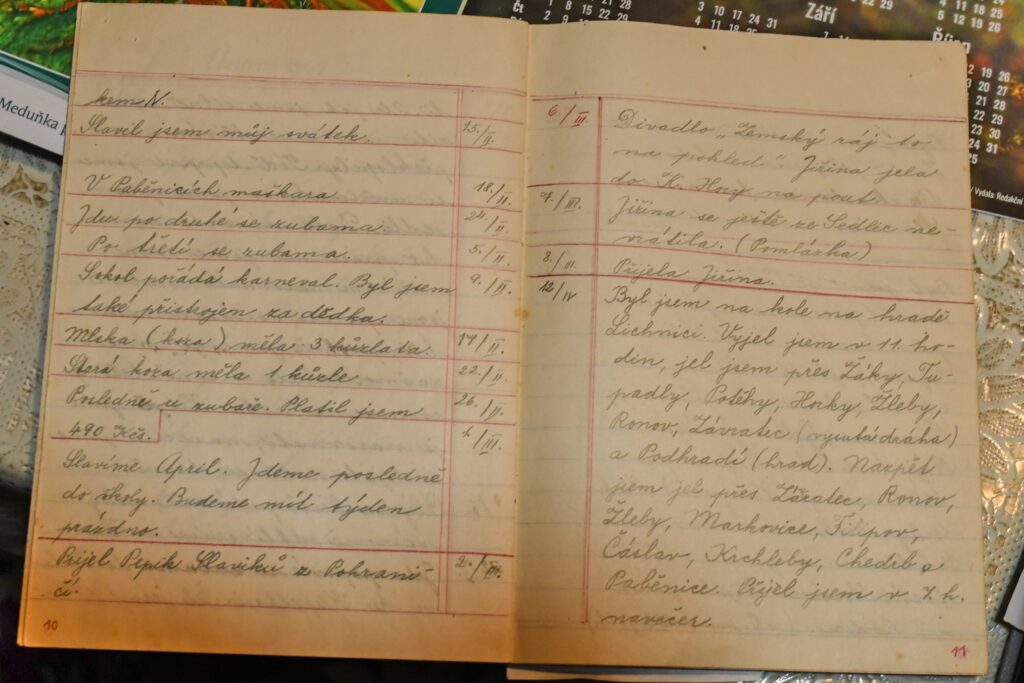 kem N.
Slavil jsem můj svátek. 15./II.
V Paběnicích maškara. 18./II.
Jdu po druhé se zubama. 24./II.
Po třetí se zubama. 5./II.
Sokol pořádá karneval. Byl jsem 9./II.
také přistrojen za dědka.
Mlska (koza) měla 3 kůzlata. 17/II.
Stará koza měla 1 kůzle 22./II.
Posledně u zubaře. Platil jsem 26./II.
490 Kčs. 1/III.
Slavíme April. Jdeme posledně
do školy. Budeme mít týden
prázdno.
Přijel Pepík Slavíků z Pohrani- 2./III.
čí.
10
6/III. Divadlo „Zemský ráj to
na pohled". Jiřina jela
do K. Hory na pout.
7./III. Jiřina se ještě ze Sedlic ne-
vrátila. (Pomlázka)
8./III. Přijela Jiřina.
12/IV Byl jsem na kole na hradě
Lichnici. Vyjel jsem v 11. ho-
din, jel jsem přes Žáky, Tu-
padly, Potěhy, Horky, Žleby,
Ronov, Závratec (vyvutá dráha)
a Podhradí (hrad). Nazpět
jsem jel přes Ronov,
Žleby, Markovice, Filipov,
Čáslav, Krchleby, Chedrb a
Paběnice. Přijel jsem v 7. h.
navečer.
11
Meduňka
Září
Říjen
/ Vydala: Redakční